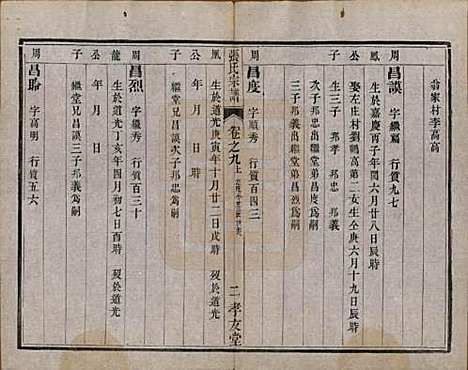 翁家村李高高
周 昌謨 字績篇 行質九七
鳳 生於嘉慶丙子年閏六月廿八辰時
公 娶左庄村劉鶴高第二女生仝庚六月十九日辰時
子 生三子 邦孝 邦忠 邦義
次子邦忠繼堂弟昌度為嗣
三子邦義繼堂弟昌烈為嗣
周 昌度 字順秀 行質百四三
張氏宗譜 卷之九上 二 孝友堂
鳳 生於道光庚寅年十月廿二日戌時 歿於道光
公 年 月 日
子 繼堂兄昌謨次子邦忠為嗣
周 昌烈 字繼秀 行質百三十
龍 生於道光丁亥年四月初七日酉時 歿於道光
公 年 月 日
子 繼堂兄昌謨三子邦義為嗣
周 昌聆 字高明 行質五六